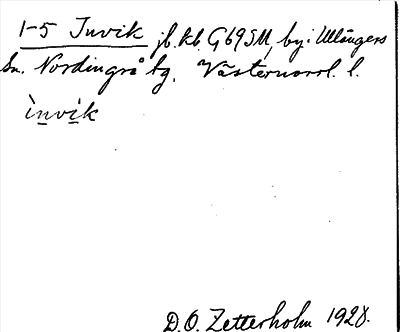 1-5 Invik jb. kb. G69SM, by: Ullångers
sn. Nordingrå tg. Västernorrl. l.
ìnvìk
D. O. Zetterholm 1928.